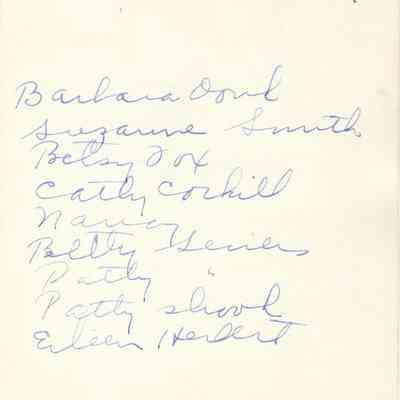 Barbara Dond
Suzanne Smith
Betsy Fox
Cathy Corkill
Nancy
Betty
Patty "
Patty Shook
Eileen Herbert